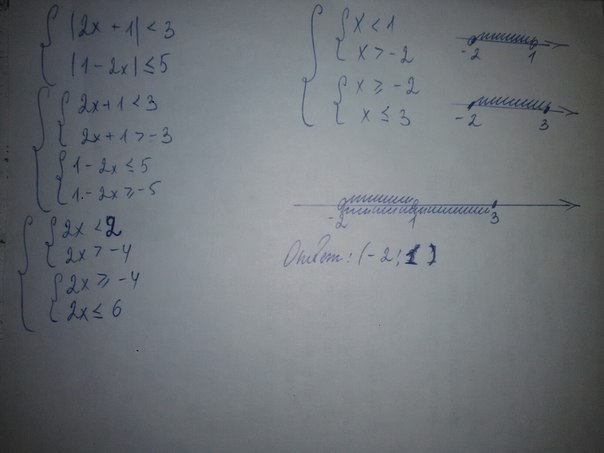 |2x + 1| < 3
|1 - 2x| ≤ 5
2x + 1 < 3
2x + 1 > -3
1 - 2x ≤ 5
1 - 2x ≥ -5
2x < 2
2x > -4
2x ≥ -4
2x ≤ 6
x < 1
x > -2
-2 1
x ≥ -2
x ≤ 3
-2 3
-2 1 3
Ответ: (-2; 1)